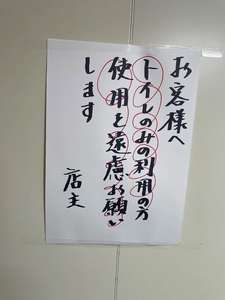 お客様へ
トイレのみの利用の方
使用を遠慮お願い
します
店主